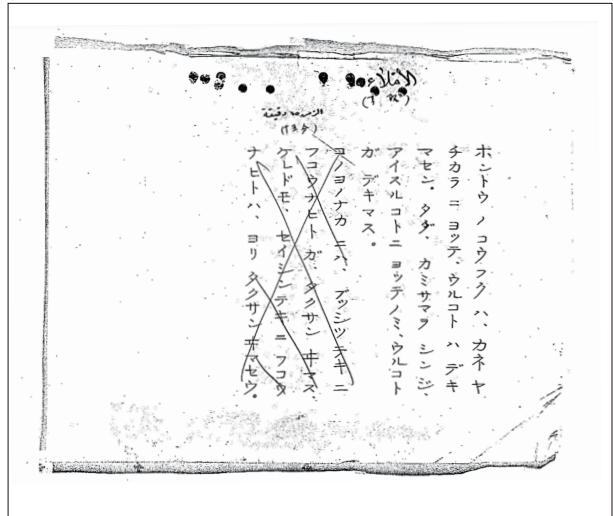 الإملاء
ホントウ ノ コウフク ハ、カネ ヤ
チカラ ニ ヨッテ、ウルコト ハ デキ
マセン。タダ、カミサマヲ シンジ、
アイスルコトニ ヨッテノミ、ウルコト
ガ デキマス。
ヨノヨノナカ ニハ、ブッシツテキ ニ
フコウナヒト ガ、タクサン ヰマス
ケレドモ、セイシンテキニ フコウ
ナヒトハ、ヨリ タクサン ヰマセウ。